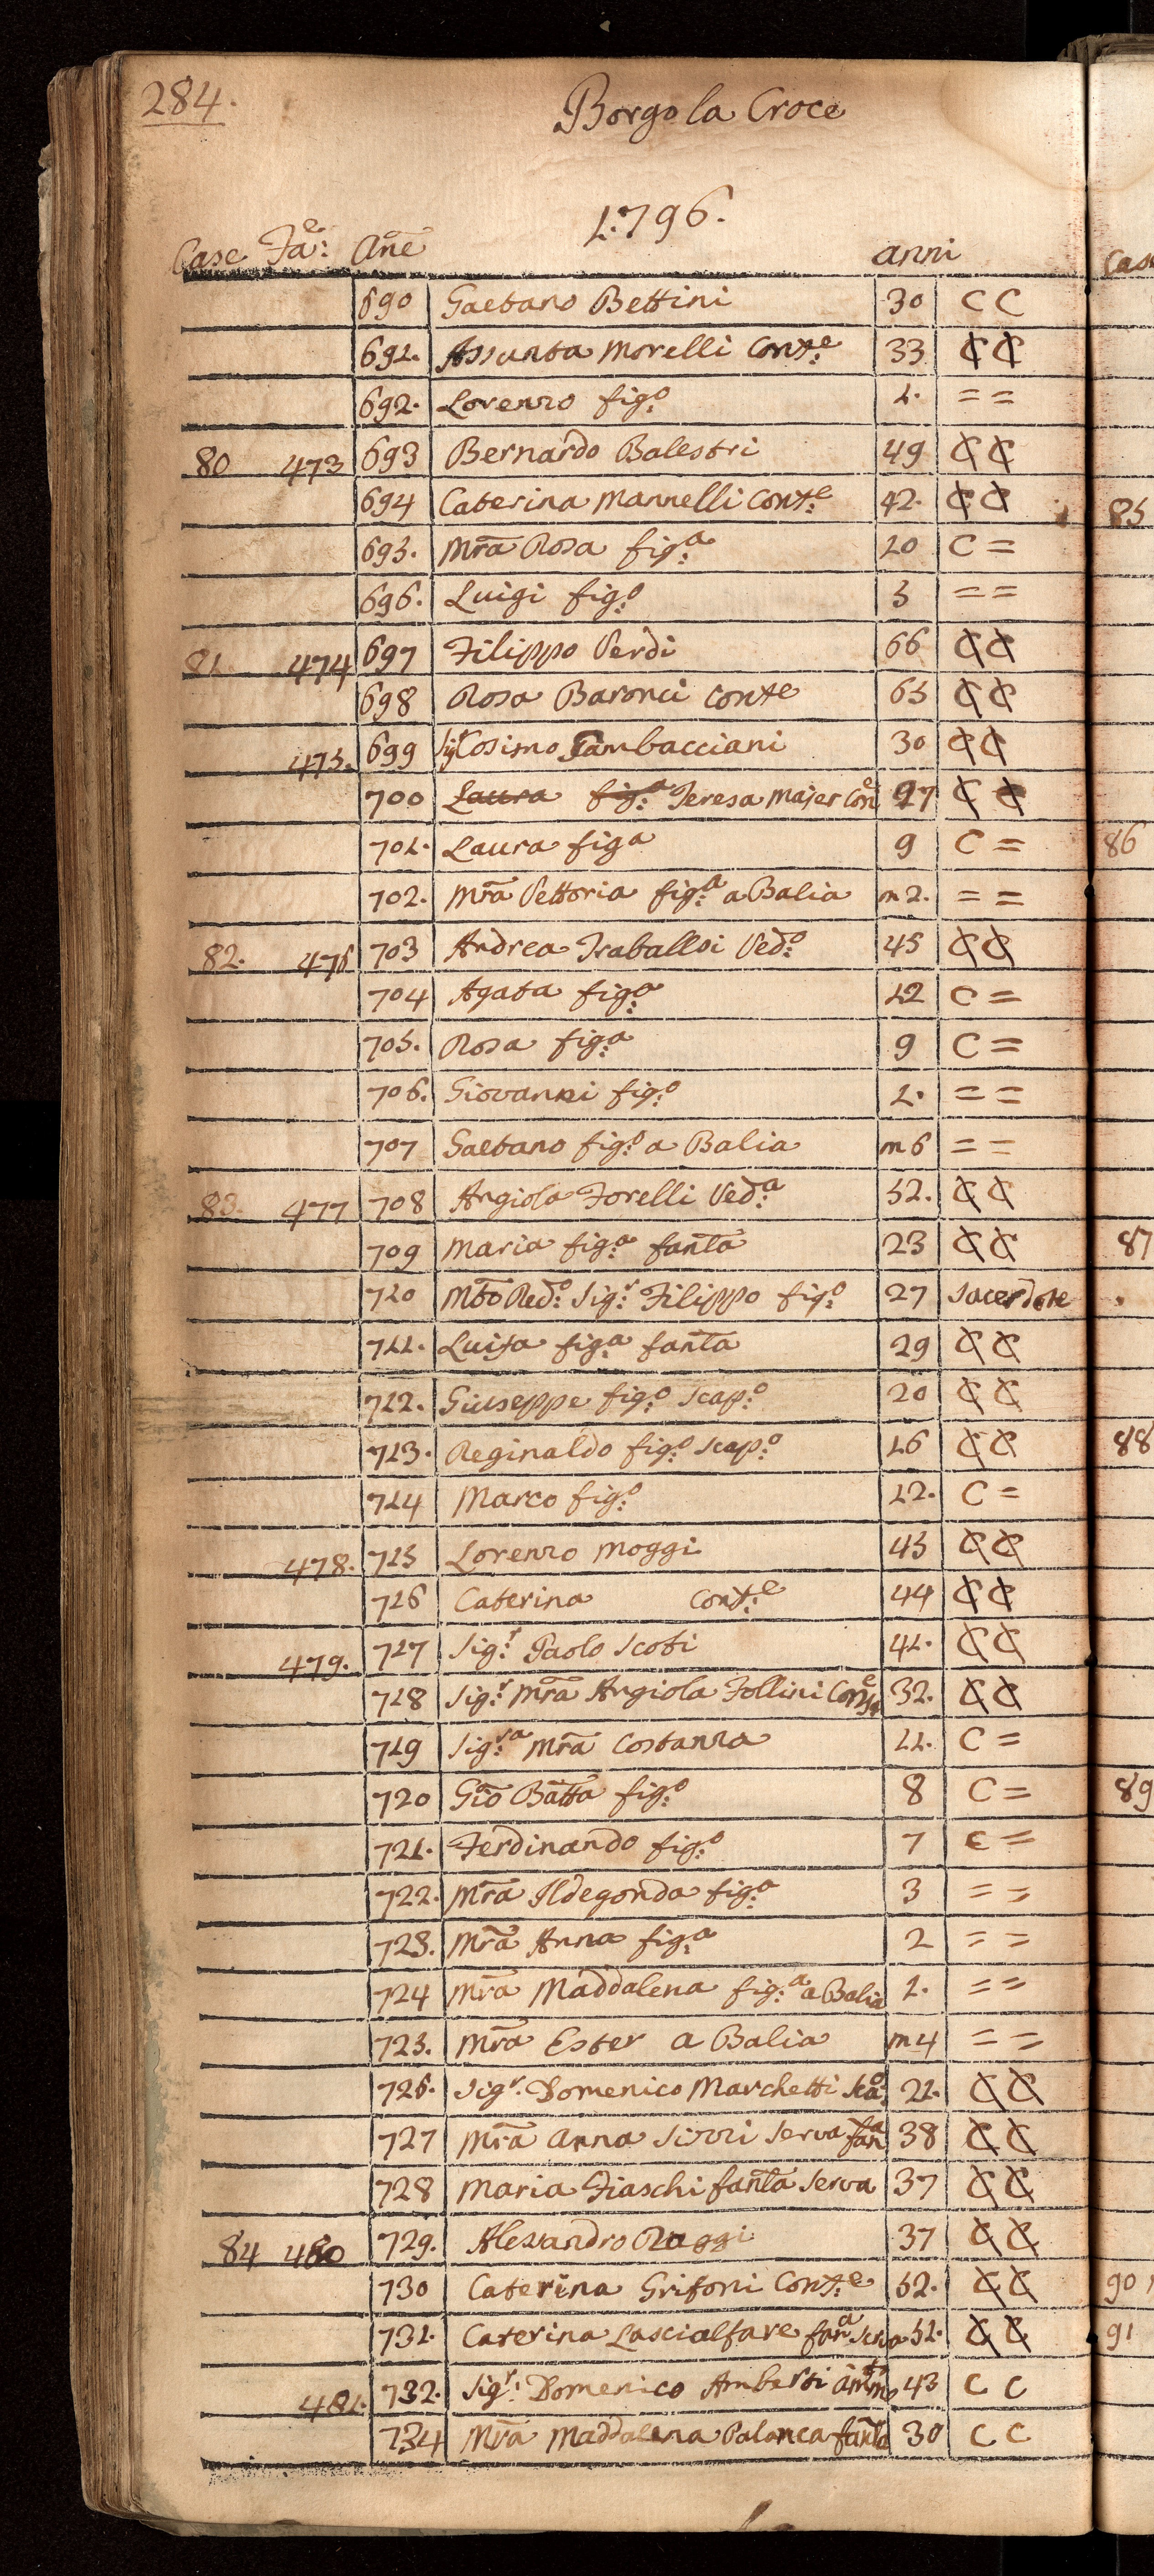 284.
Borgo la Croce
1796.
Case Fa:e Ane anni
690 Gaetano Bettini 30 C C
691. Assunta Morelli Cont:e 33 C C
692. Lorenzo fig:o 1. = =
80 473 693 Bernardo Balestri 49 C C
694 Caterina Mannelli Cont:e 42. C C
695. Mra Rosa fig:a 10 C =
696. Luigi fig:o 5 = =
81. 474 697 Filippo Verdi 66 C C
698 Rosa Baronci Conte 65 C C
475. 699 Sigr Cosimo Gambacciani 30 C C
700 Laura fig:a Teresa Majer Con:e 27 C C
701. Laura figa 9 C =
702. Mra Vettoria fig:a a Balia m 2. = =
82. 476 703 Andrea Traballoi Ved:o 45 C C
704 Agata fig:a 12 C =
705. Rosa fig:a 9 C =
706. Giovanni fig:o 1. = =
707 Gaetano fig:o a Balia m 6 = =
83. 477 708 Angiola Forelli Ved:a 52. C C
709 Maria fig:a fanta 23 C C
710 Mto Red:o Sig:r Filippo fig:o 27 Sacerdote
711. Luisa fig:a fanta 29 C C
712. Giuseppe fig:o Scap:o 20 C C
713. Reginaldo fig:o Scap:o 16 C C
714 Marco fig:o 12. C =
478. 715 Lorenzo Moggi 45 C C
716 Caterina Cont:e 44 C C
479. 717 Sig:r Paolo Scoti 41. C C
718 Sig:r Mra Angiola Follini Conte 32. C C
719 Sig:ra Mra Costanza 11. C =
720 Gio Batta fig:o 8 C =
721. Ferdinando fig:o 7 C =
722. Mra Ildegonda fig:a 3 = =
723. Mra Anna fig:a 2 = =
724 Mra Maddalena fig:a a Balia 1. = =
725. Mra Ester a Balia m 4 = =
726. Sigr. Domenico Marchetti Sca:o 21. C C
727 Mra Anna Sizzi Serva fana 38 C C
728 Maria Fiaschi fanta Serva 37 C C
84 480 729. Alesandro Raggi 37 C C
730 Caterina Grifoni Cont:e 52. C C
731. Caterina Lascialfare fana Serva 51. C C
481. 732. Sigr: Domenico Amberti 43 C C
734 Mra Maddalena Palanca fanta 30 C C
Case
85
86
87
88
89
90
91